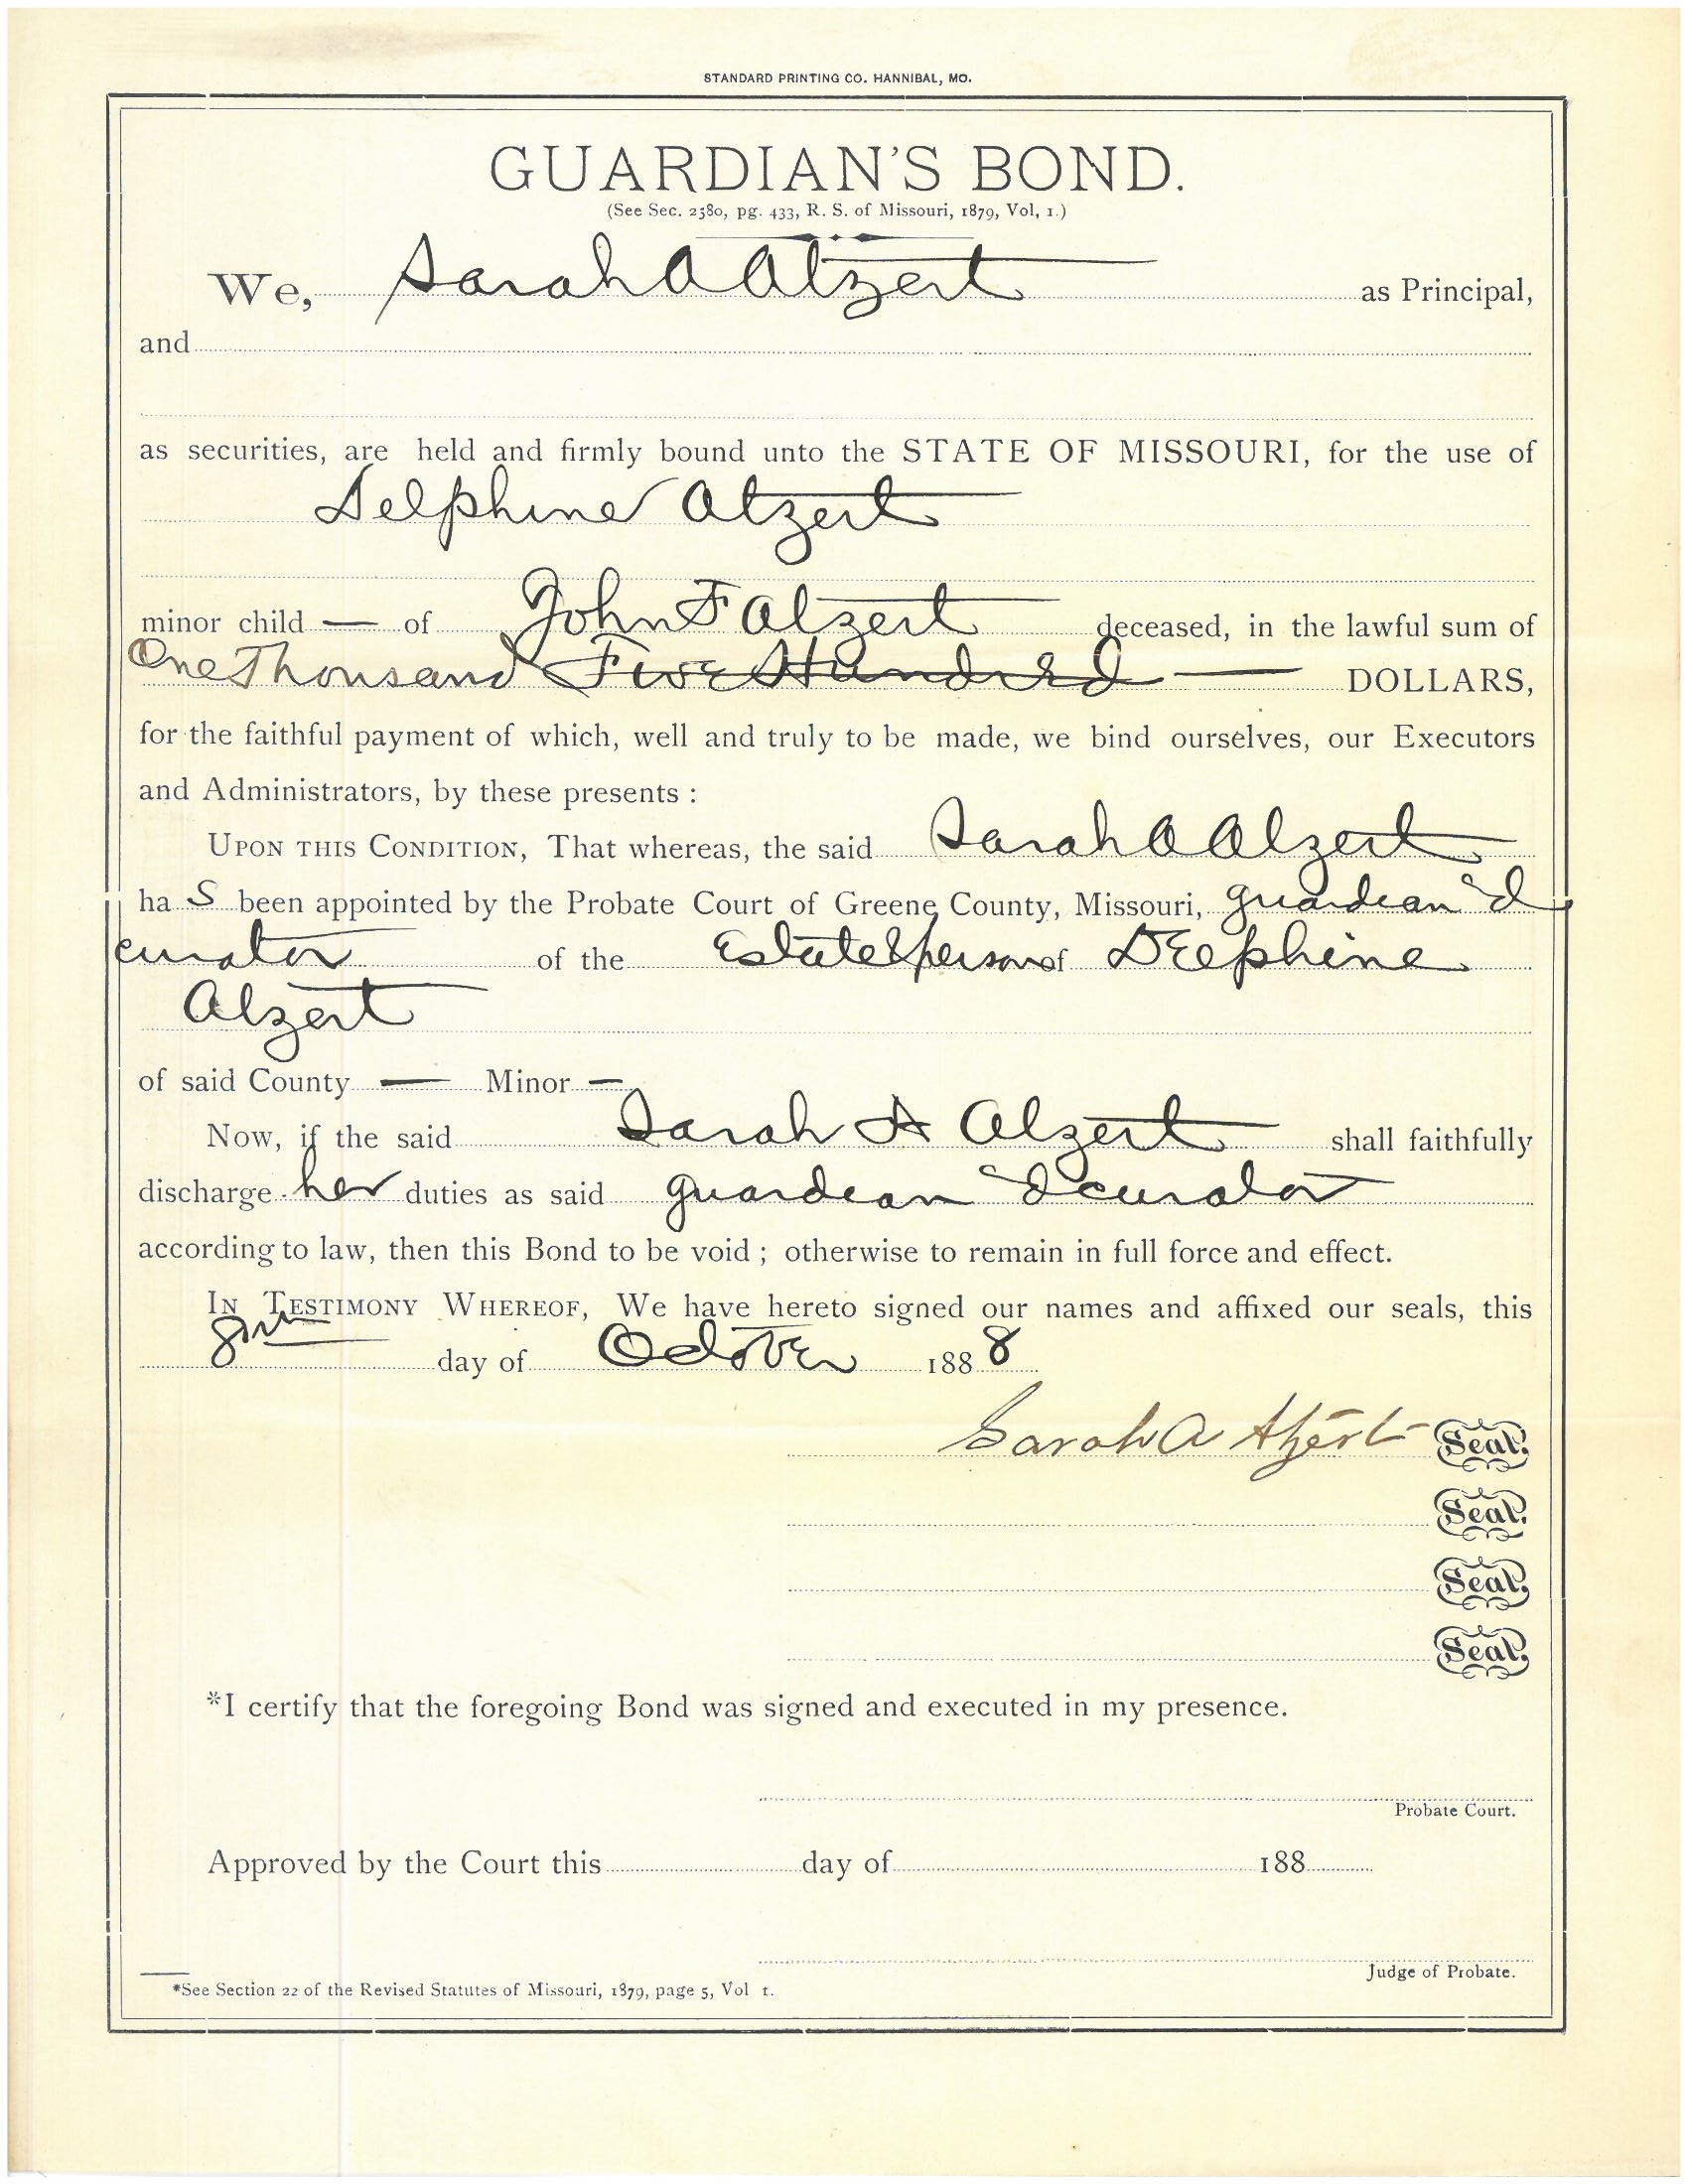 STANDARD PRINTING CO. HANNIBAL, MO.
GUARDIAN'S BOND.
(See Sec. 2580, pg. 433, R. S. of Missouri, 1879, Vol, 1.)
We, Sarah A Atzert as Principal,
and
as securities, are held and firmly bound unto the STATE OF MISSOURI, for the use of
Delphine Atzert
minor child — of John F Atzert deceased, in the lawful sum of
One Thousand Five Hundred — DOLLARS,
for the faithful payment of which, well and truly to be made, we bind ourselves, our Executors
and Administrators, by these presents :
UPON THIS CONDITION, That whereas, the said Sarah A Atzert
ha s been appointed by the Probate Court of Greene County, Missouri, guardean &
curator of the Estate & person of Delphine
Atzert
of said County — Minor —
Now, if the said Sarah A Atzert shall faithfully
discharge her duties as said guardean & curator
according to law, then this Bond to be void ; otherwise to remain in full force and effect.
IN TESTIMONY WHEREOF, We have hereto signed our names and affixed our seals, this
8th day of October 1888
Sarah A Atzert Seal.
Seal.
Seal.
Seal.
*I certify that the foregoing Bond was signed and executed in my presence.
Probate Court.
Approved by the Court this day of 188
Judge of Probate.
*See Section 22 of the Revised Statutes of Missouri, 1879, page 5, Vol 1.